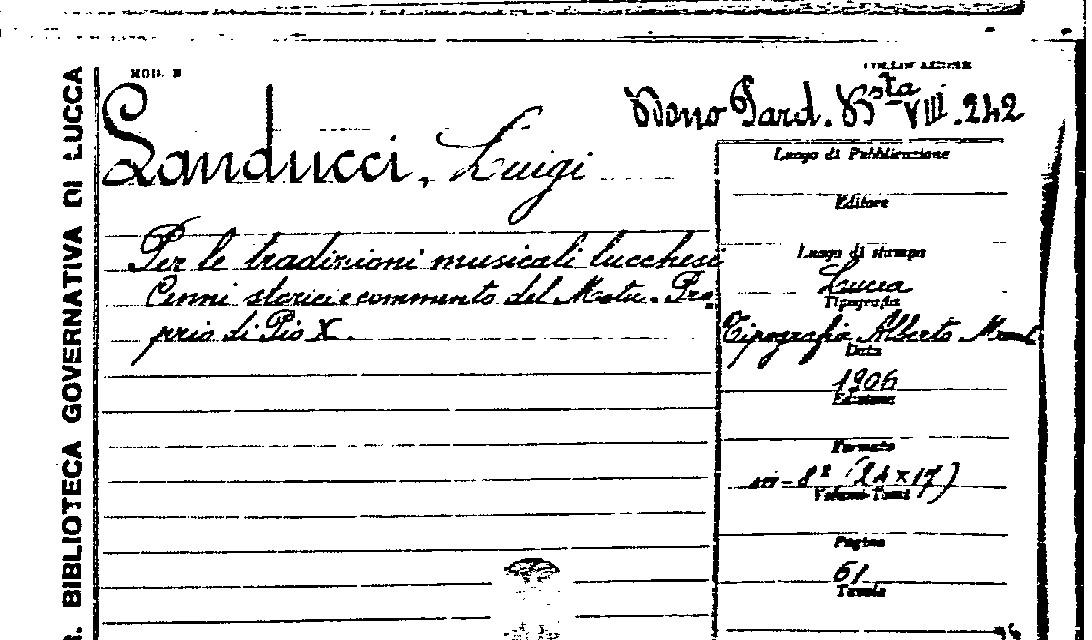 MOD. B
COLLOCAZIONE
Dono Pard. Bsta VIII. 242
Landucci, Luigi
Per le tradizioni musicali lucchesi
Cenni storici e commento del Motu-Pro
prio di Pio X.
Luogo di Pubblicazione
Editore
Luogo di stampa
Lucca
Tipografia
Tipografia Alberto
Data
1906
Edizione
Formato
in-8º (24 x 17)
Volumi-Tomi
Pagine
61
Tavole
R. BIBLIOTECA GOVERNATIVA DI LUCCA